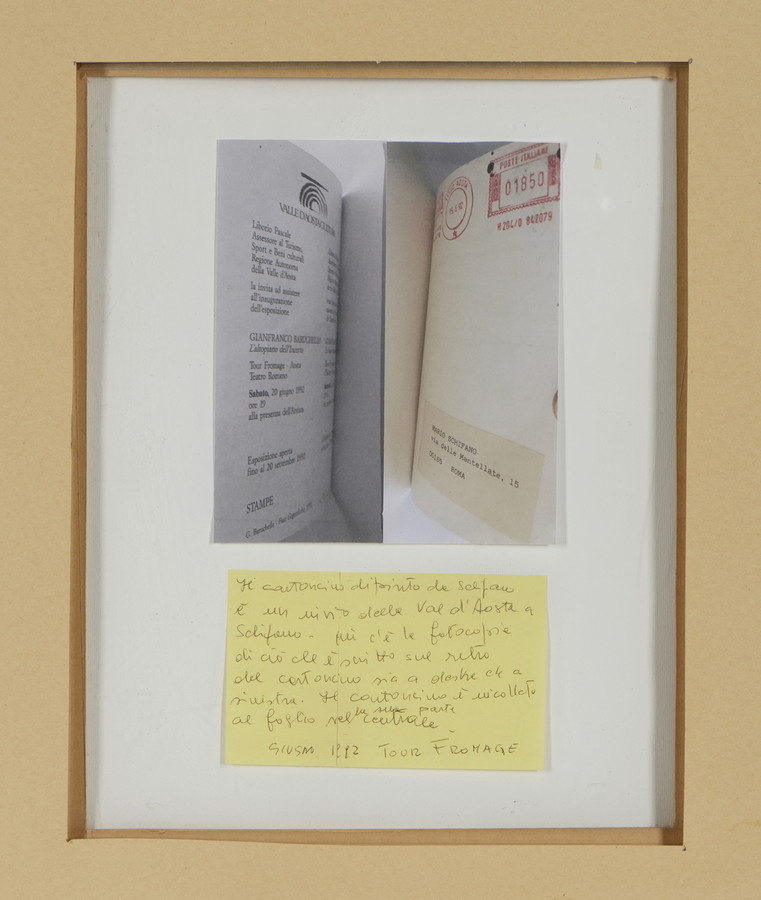 VALLE D'AOSTA
Liborio Pascale
Assessore al Turismo,
Sport e Beni culturali
Regione Autonoma
della Valle d'Aosta
la invita ad assistere
all'inaugurazione
dell'esposizione
GIANFRANCO BARUCHELLO
L'altopiano dell'Incerto
Tour Fromage - Aosta
Teatro Romano
Sabato, 20 giugno 1992
ore 19
alla presenza dell'Artista
Esposizione aperta
fino al 20 settembre 1992
STAMPE
G. Baruchello
POSTE ITALIANE
01850
AOSTA
R204/D 842079
MARIO SCHIFANO
via delle Mantellate, 15
ROMA
Il cartoncino dipinto da
è un invito della Val d'Aosta a
Schifano - qui c'è la fotocopia
di ciò che è scritto sul retro
del cartoncino sia a destra che a
sinistra. Il cartoncino è incollato
al foglio nella sua parte
centrale.
GIUGNO 1992 TOUR FROMAGE